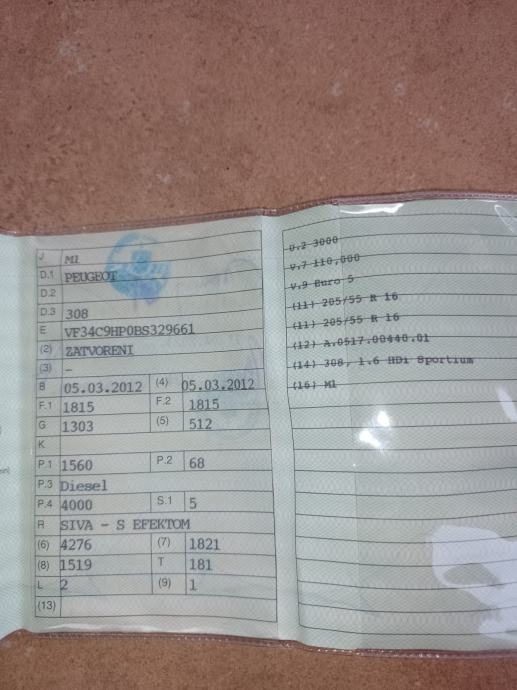 J M1
D.1 PEUGEOT
D.2
D.3 308
E VF34C9HP0BS329661
(2) ZATVORENI
(3) -
B 05.03.2012 (4) 05.03.2012
F.1 1815 F.2 1815
G 1303 (5) 512
K
P.1 1560 P.2 68
P.3 Diesel
P.4 4000 S.1 5
R SIVA - S EFEKTOM
(6) 4276 (7) 1821
(8) 1519 T 181
L 2 (9) 1
(13)
U.2 3000
V.7 110,000
V.9 Euro 5
(11) 205/55 R 16
(11) 205/55 R 16
(12) A.0517.00440.01
(14) 308, 1.6 HDi Sportium
(16) M1